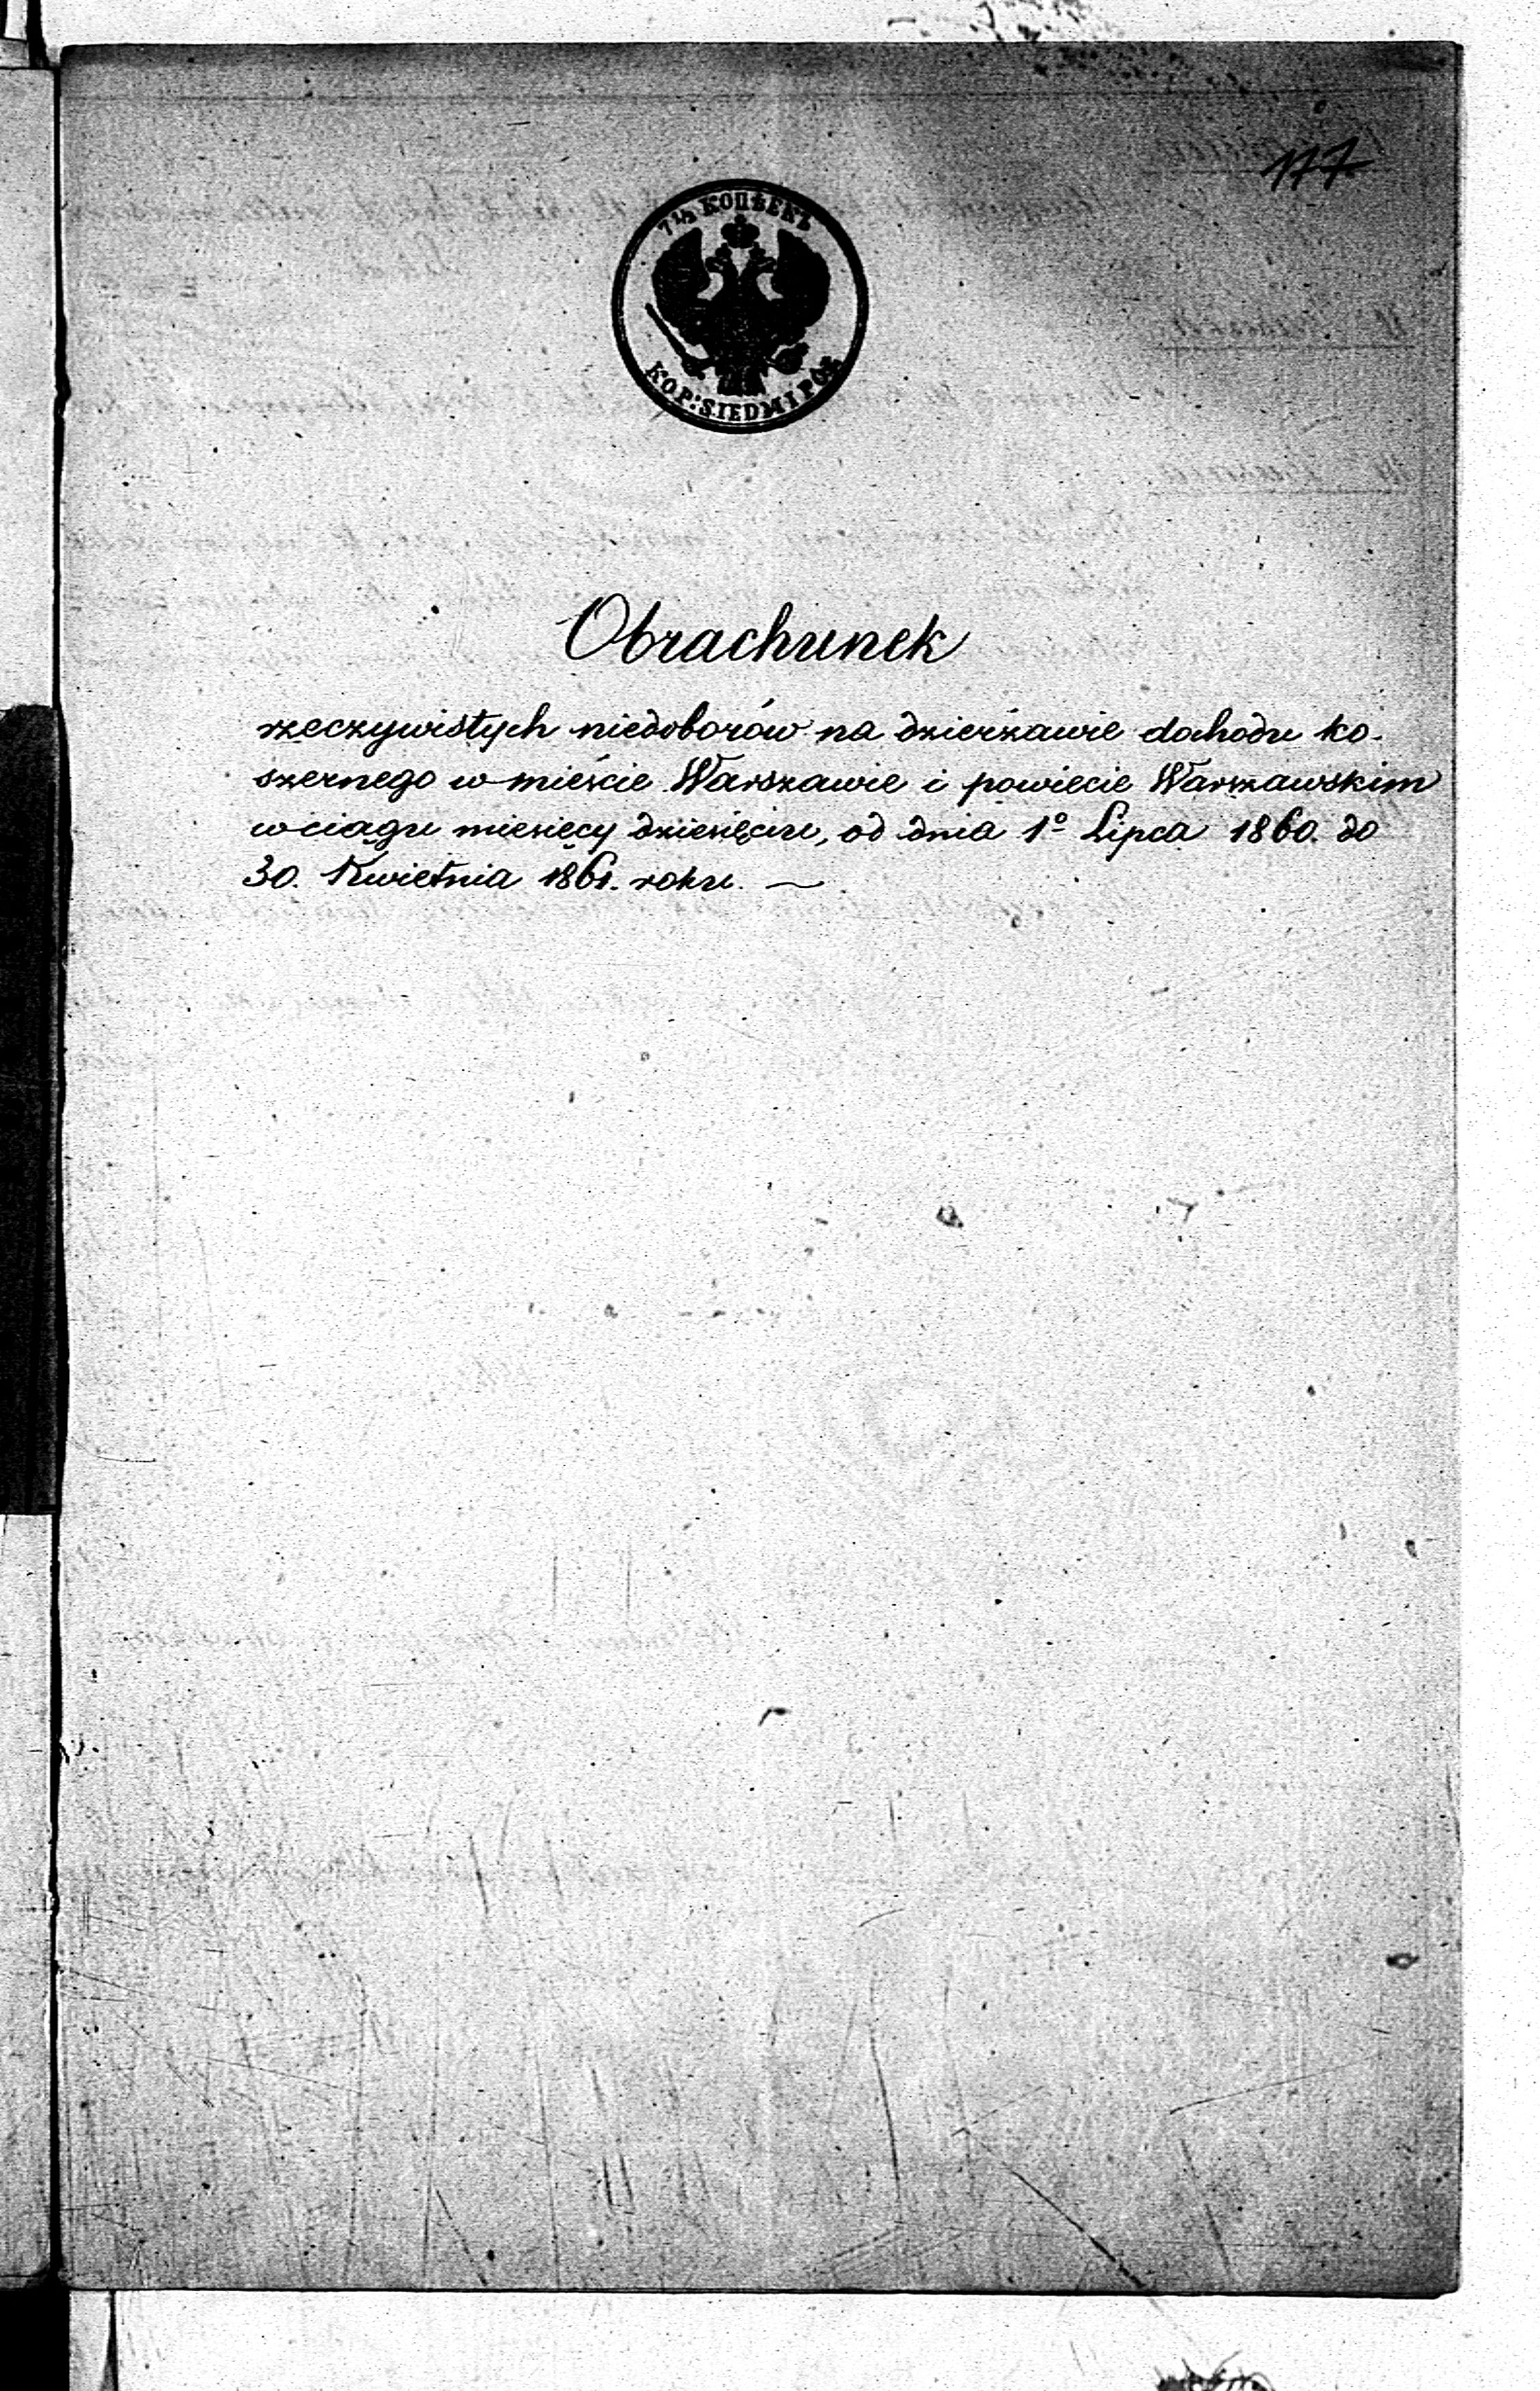 177
7 1/2 КОПѢЕКЪ
KOP: SIEDM I PÓŁ
Obrachunek
rzeczywistych niedoborów na dzierżawie dochodu ko-
szernego w mieście Warszawie i powiecie Warszawskim
w ciągu miesięcy dziesięciu, od dnia 1º Lipca 1860. do
30. Kwietnia 1861. roku. —